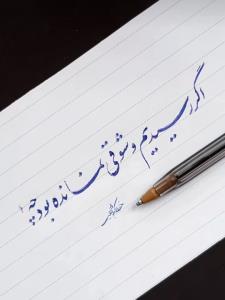 اگر رسیدیم و شوقی نمانده بود چه